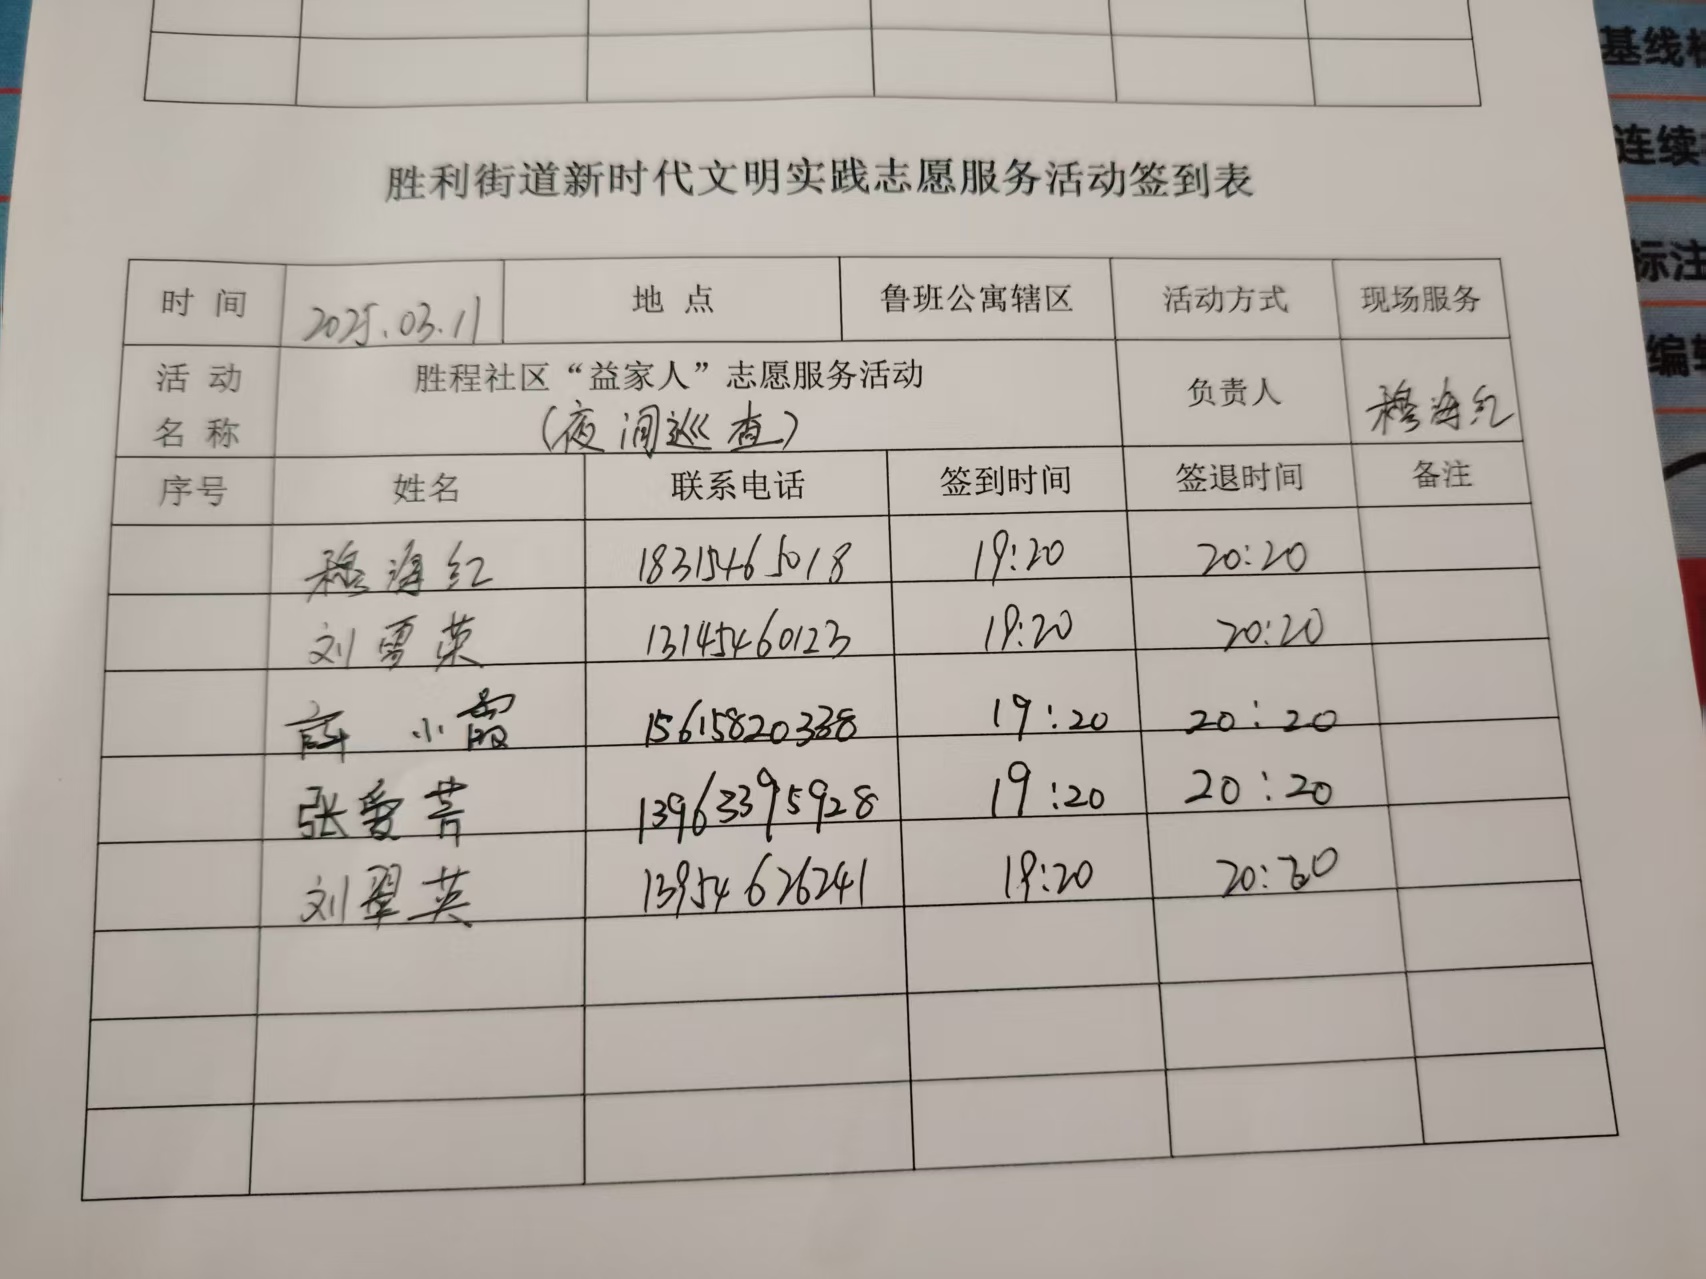 胜利街道新时代文明实践志愿服务活动签到表
时 间 2025.03.11 地 点 鲁班公寓辖区 活动方式 现场服务
活 动 名 称 胜程社区“益家人”志愿服务活动 负责人 穆海红
（夜间巡查）
序号 姓名 联系电话 签到时间 签退时间 备注
穆海红 18315465018 19:20 20:20
刘雪英 13145460123 19:20 20:20
薛小霞 15615820338 19:20 20:20
张爱芳 13963395928 19:20 20:20
刘翠英 13954626241 19:20 20:20
基线
连续
标注
编辑